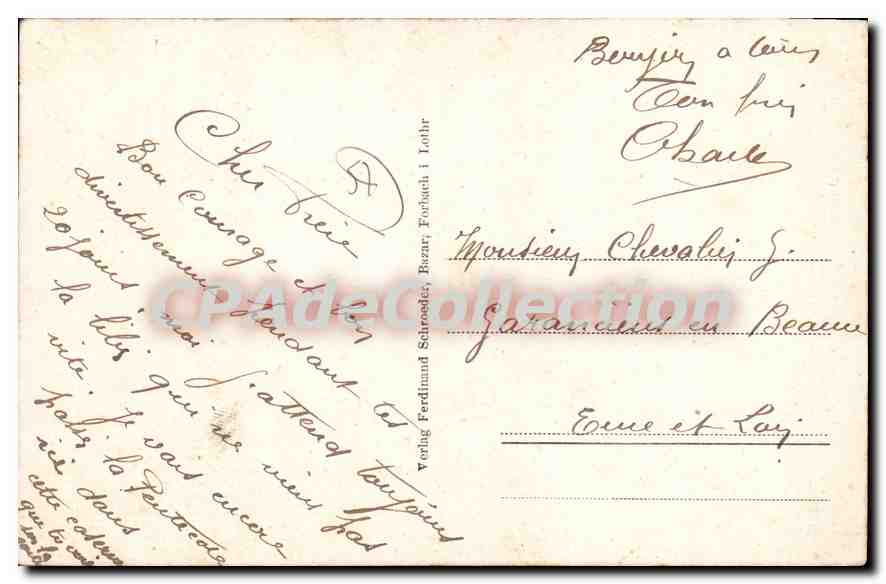 Cher Frère
Bon courage et bon
divertissement pendant tes
20 jours, moi j'attend toujours
la libé qui ne vient pas
vite. Je vais encore
passer la Pentecôte
ici dans
cette caserne
que tu
Verlag Ferdinand Schroeder, Bazar; Forbach i Lothr
Bonjour a tous
Ton frère
Charles
Monsieur Chevalier G.
Garancières en Beauce
Eure et Loir
CPAdeCollection